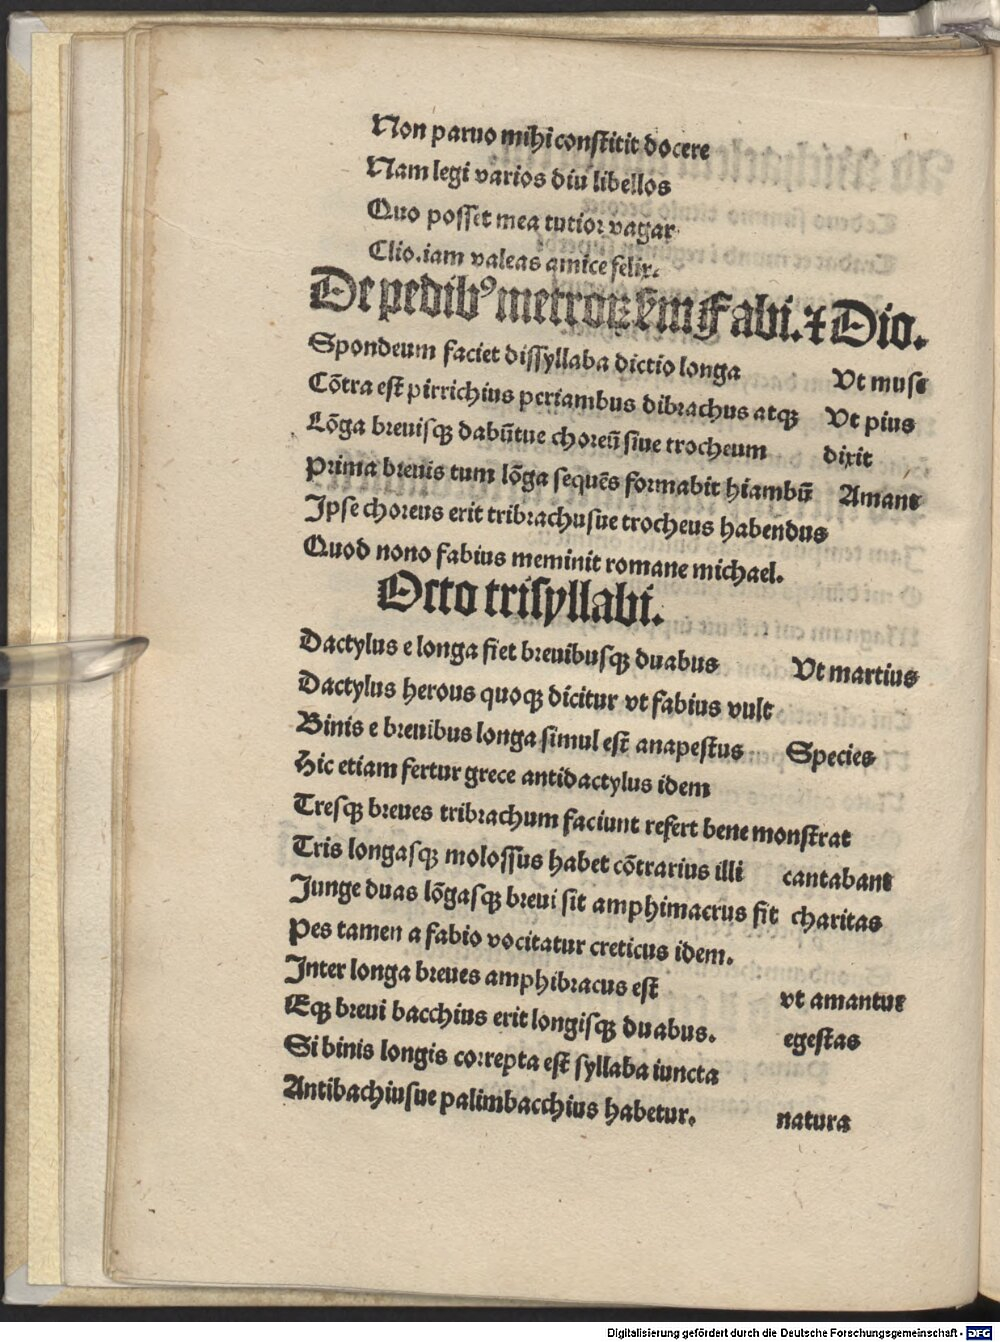 Non paruo mihi constitit docere
Nam legi varios diu libellos
Quo posset mea tutior vagar
Clio. iam valeas amice felix.
De pedibꝰ metroꝝ scḋm Fabi. ⁊ Dio.
Spondeum faciet dissyllaba dictio longa Vt muse
Cōtra est pirrichius periambus dibrachus atqꝫ Vt pius
Lōga breuisqꝫ dabūtue choreū siue trocheum dixit
Prima breuis tum lōga sequēs formabit hiambū Amans
Ipse choreus erit tribrachusue trocheus habendus
Quod nono fabius meminit romane michael.
Octo trisyllabi.
Dactylus e longa fiet breuibusqꝫ duabus Vt martius
Dactylus herous quoqꝫ dicitur vt fabius vult
Binis e breuibus longa simul est anapestus Species
Hic etiam fertur grece antidactylus idem
Tresqꝫ breues tribrachum faciunt refert bene monstrat
Tris longasqꝫ molossus habet cōtrarius illi cantabant
Junge duas lōgasqꝫ breui sit amphimacrus fit charitas
Pes tamen a fabio vocitatur creticus idem.
Inter longa breues amphibracus est vt amantur
Eqꝫ breui bacchius erit longisqꝫ duabus. egestas
Si binis longis correpta est syllaba iuncta
Antibachiusue palimbacchius habetur. natura
Digitalisierung gefördert durch die Deutsche Forschungsgemeinschaft - DFG